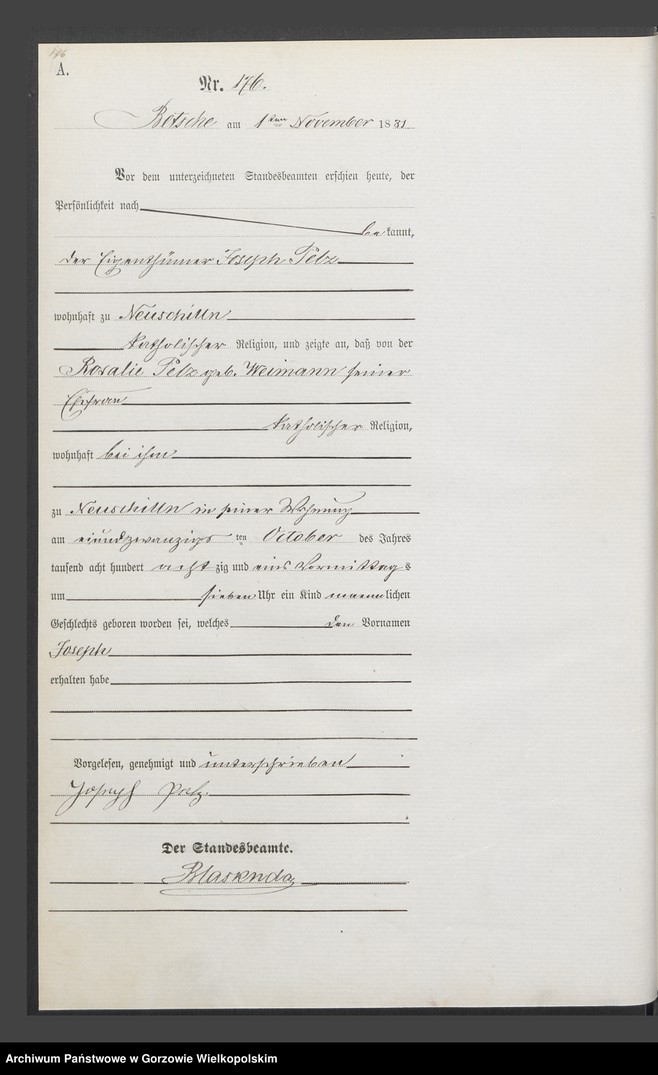 176
A.
Nr. 176.
Betsche am 1ten November 1881
Vor dem unterzeichneten Standesbeamten erschien heute, der
Persönlichkeit nach
be kannt,
der Eigenthümer Joseph Pelz
wohnhaft zu Neuschilln
katholischer Religion, und zeigte an, daß von der
Rosalie Pelz geb. Weimann seiner
Ehefrau
katholischer Religion,
wohnhaft bei ihm
zu Neuschilln in seiner Wohnung
am einundzwanzigs ten October des Jahres
tausend acht hundert acht zig und eins Vormittag s
um sieben Uhr ein Kind maenn lichen
Geschlechts geboren worden sei, welches den Vornamen
Joseph
erhalten habe
Vorgelesen, genehmigt und unterschrieben
Joseph Pelz
Der Standesbeamte.
Archiwum Państwowe w Gorzowie Wielkopolskim